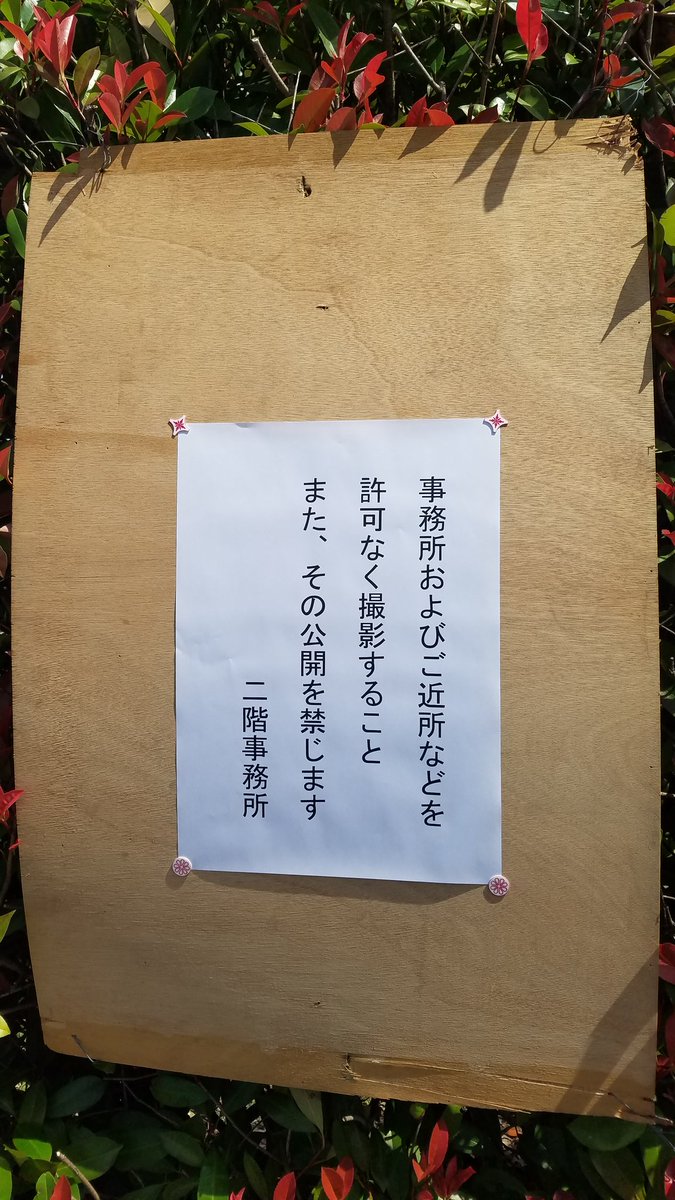 事務所およびご近所などを
許可なく撮影すること
また、その公開を禁じます
二階事務所